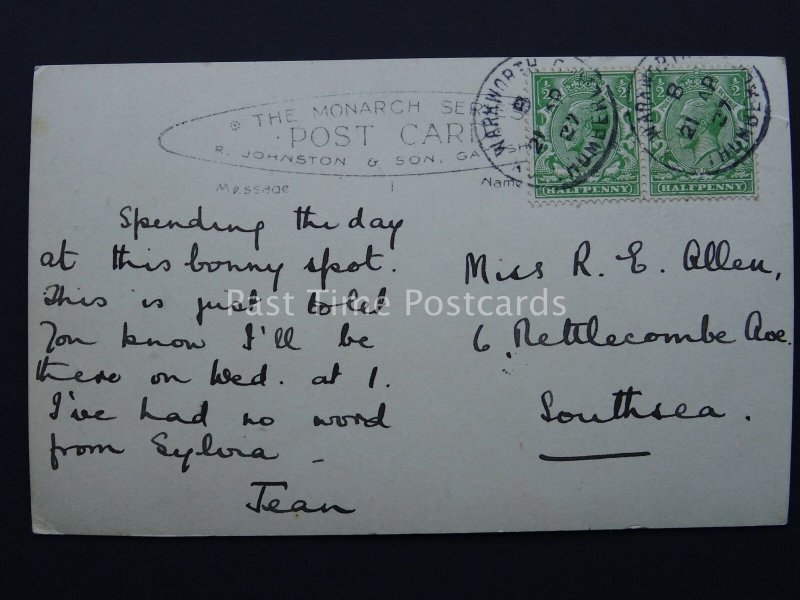 THE MONARCH SERIES
POST CARD
R. JOHNSTON & SON, GATESHEAD
Message
Name
WARKWORTH
8
21 AP
27
HALFPENNY
WARKWORTH
8
21 AP
27
HALFPENNY
Spending the day
at this bonny spot.
This is just to let
you know I'll be
there on Wed. at 1.
I've had no word
from Sylvia
Jean
Miss R. E. Allen,
6, Nettlecombe Ave.
Southsea.
Past Time Postcards